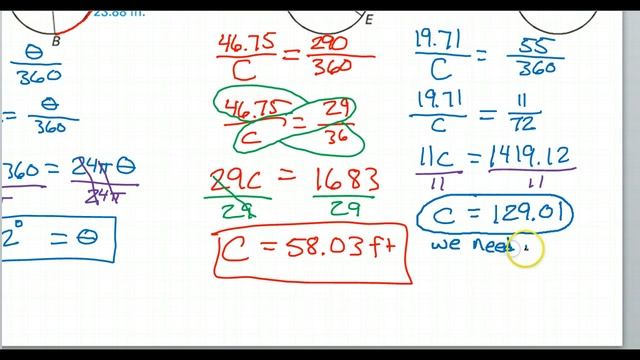 23.88 m.
B
E
θ
360
= θ
360
360 = 24π θ
24π
2° = θ
46.75 = 290
C 360
46.75 = 29
C 36
29C = 1683
29 29
C = 58.03 ft
19.71 = 55
C 360
19.71 = 11
C 72
11C = 1419.12
11 11
C = 129.01
we need